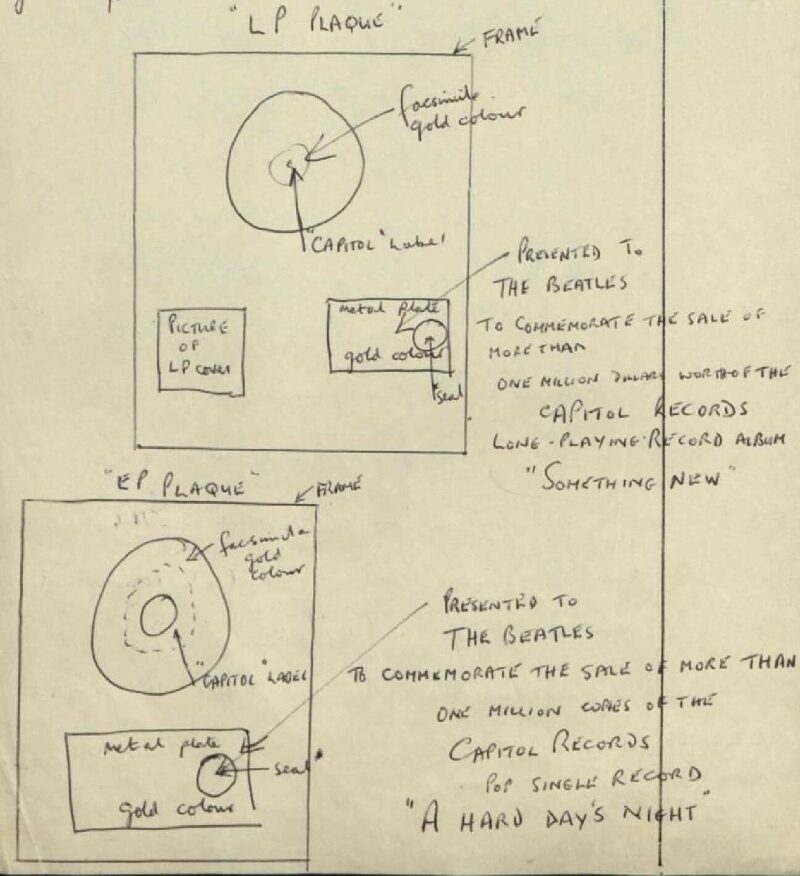 "LP PLAQUE"
FRAME
facsimile
gold colour
"CAPITOL" Label
PICTURE
OF
LP COVER
metal plate
gold colour
seal
PRESENTED TO
THE BEATLES
TO COMMEMORATE THE SALE OF
MORE THAN
ONE MILLION DOLLARS WORTH OF THE
CAPITOL RECORDS
LONG-PLAYING RECORD ALBUM
"SOMETHING NEW"
"EP PLAQUE"
FRAME
facsimile
gold
colour
"CAPITOL" LABEL
metal plate
seal
gold colour
PRESENTED TO
THE BEATLES
TO COMMEMORATE THE SALE OF MORE THAN
ONE MILLION COPIES OF THE
CAPITOL RECORDS
POP SINGLE RECORD
"A HARD DAY'S NIGHT"